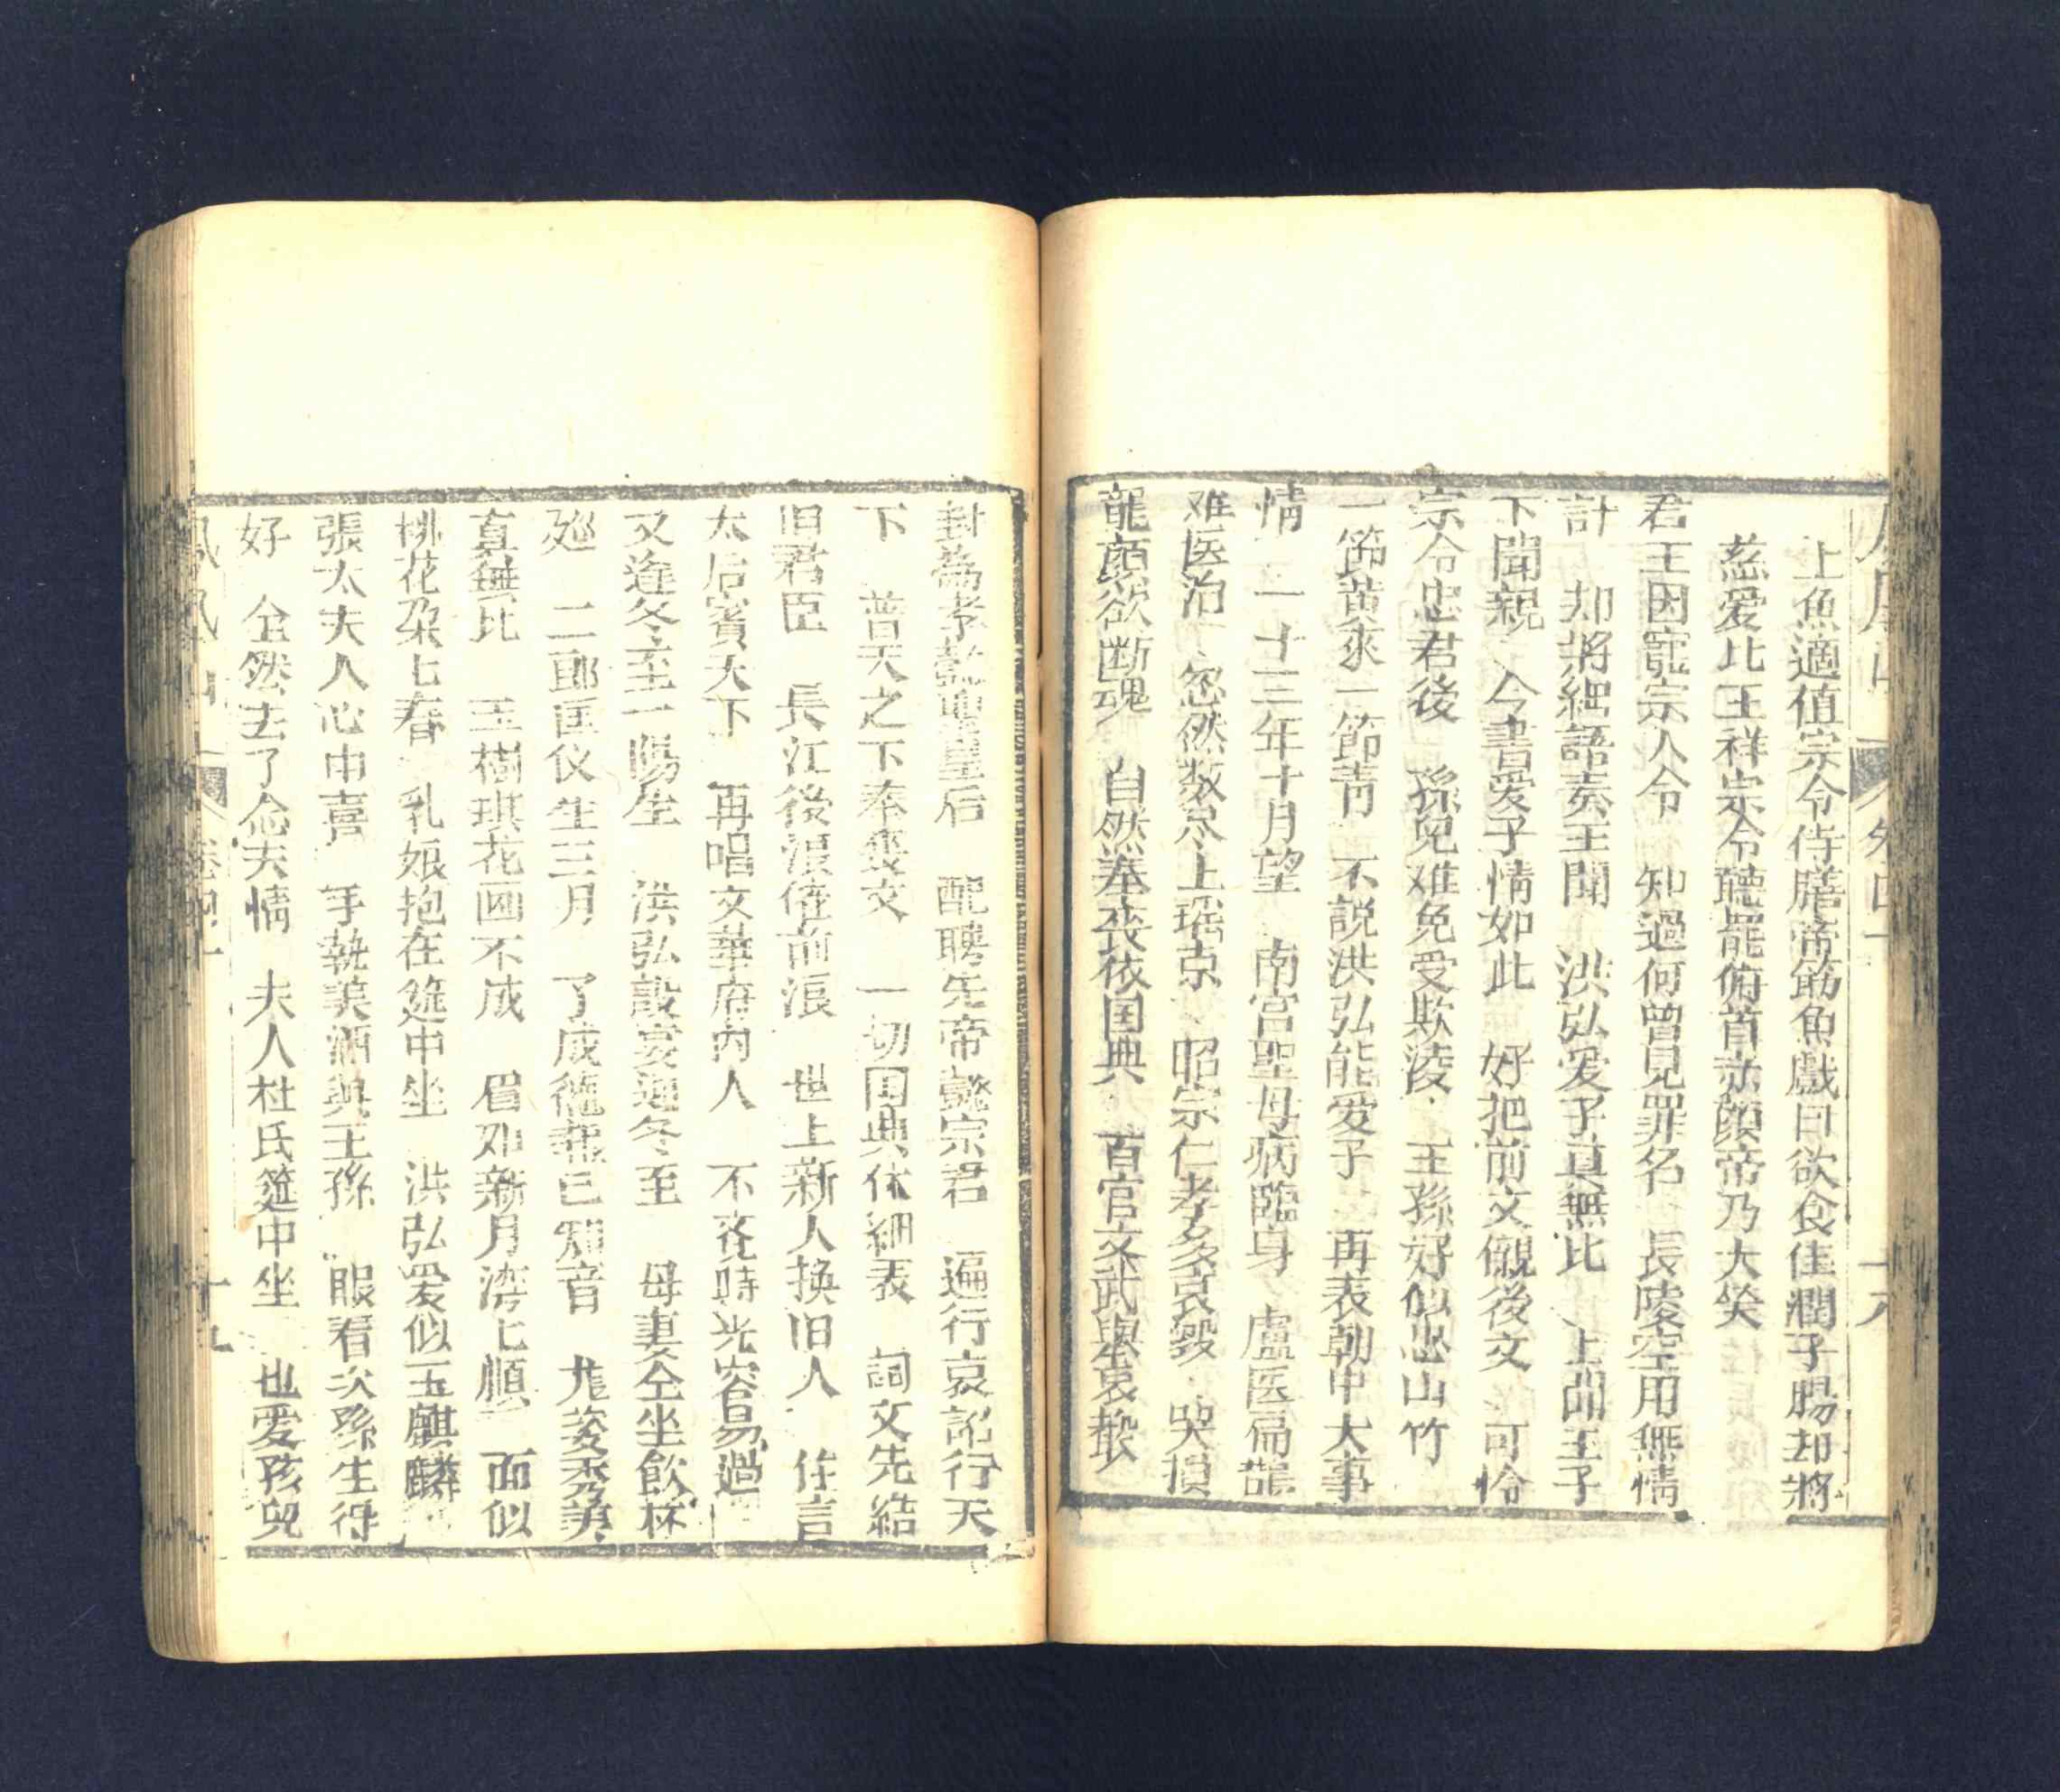 上魚適值宗令侍膳帝筯魚戲曰欲食佳潤子腸却將
慈愛比王祥宗令聽罷俯首赤顔帝乃大笑
君王因寵宗人令 知過何曾見罪名 長陵空用無情
計 却將細語奏王聞 洪弘爱子真無比 上聞王子
下聞親 今書愛子情如此 好把前文儭後文 可怜
宗令忠君後 孫兒难免受欺淩 王孫好似山竹
一節黄來一節青 不説洪弘能愛子 再表朝中大事
情 二十三年十月望 南宫聖母病臨身 盧医扁鵲
难医治 忽然数尽上瑶京 昭宗仁孝多哀毀 哭損
龍顔欲断魂 自然奉丧依国典 百官文武舉哀
封為孝懿聖皇后 配聘先帝懿宗君 遍行哀詔行天
下 普天之下奉喪文 一切国典休細表 詞文先結
旧君臣 長江後浪催前浪 世上新人换旧人 住言
太后賓天下 再唱文華府内人 不竟時光容易過
又逢冬至一陽生 洪弘設宴迎冬至 母妻仝坐飲杯
廵 二郎匡仪生三月 了成 已 音 尨姿秀美
真無比 玉樹琪花画不成 眉如新月湾七順 面似
桃花朶七春 乳娘抱在筵中坐 洪弘爱似玉麒麟
張太夫人心中喜 手執美酒與王孫 眼看次孫生得
好 仝然去了念夫情 夫人杜氏筵中坐 也愛孩兒
卷四 十九